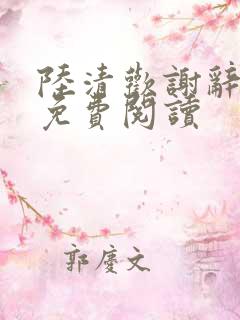 陸清歡謝辭
免費閱讀
郭慶文